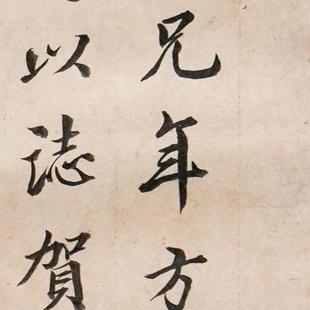 兄年方
以誌賀